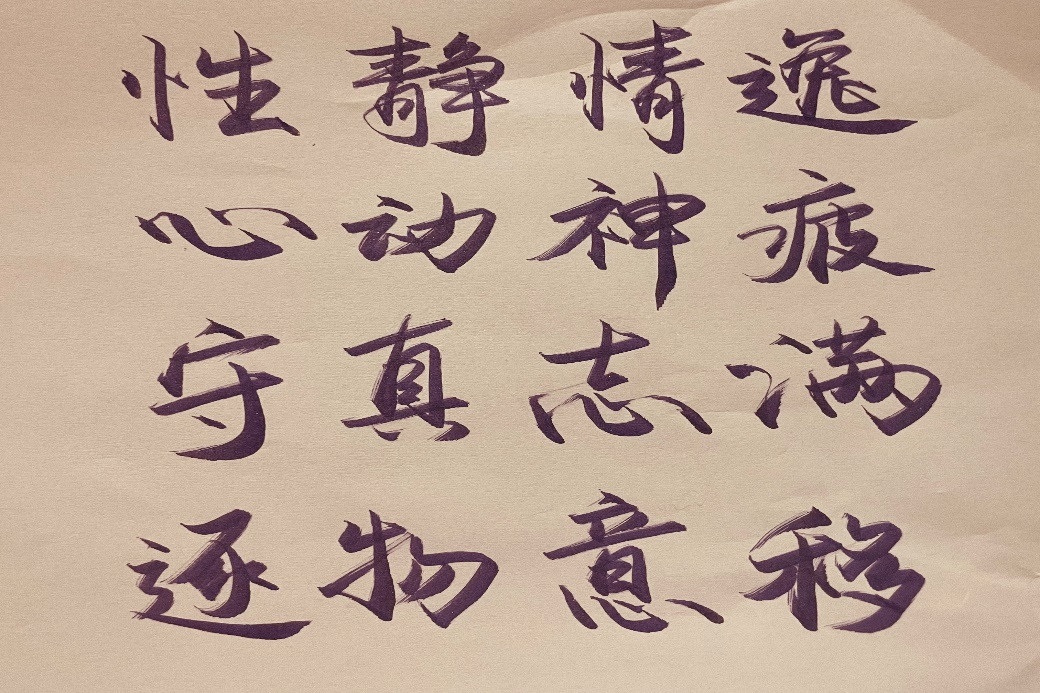 性静情逸
心动神疲
守真志满
逐物意移